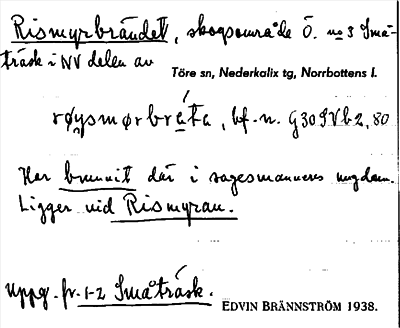 Rismyrbrändet, skogsområde Ö. no 3 Små-
träsk i NV delen av
Töre sn, Nederkalix tg, Norrbottens l.
bf. n. G30SVb2, 80
Har brunnit där i sagesmannens ungdom.
Ligger vid Rismyran.
Uppg. fr. 1-2 Småträsk.
EDVIN BRÄNNSTRÖM 1938.